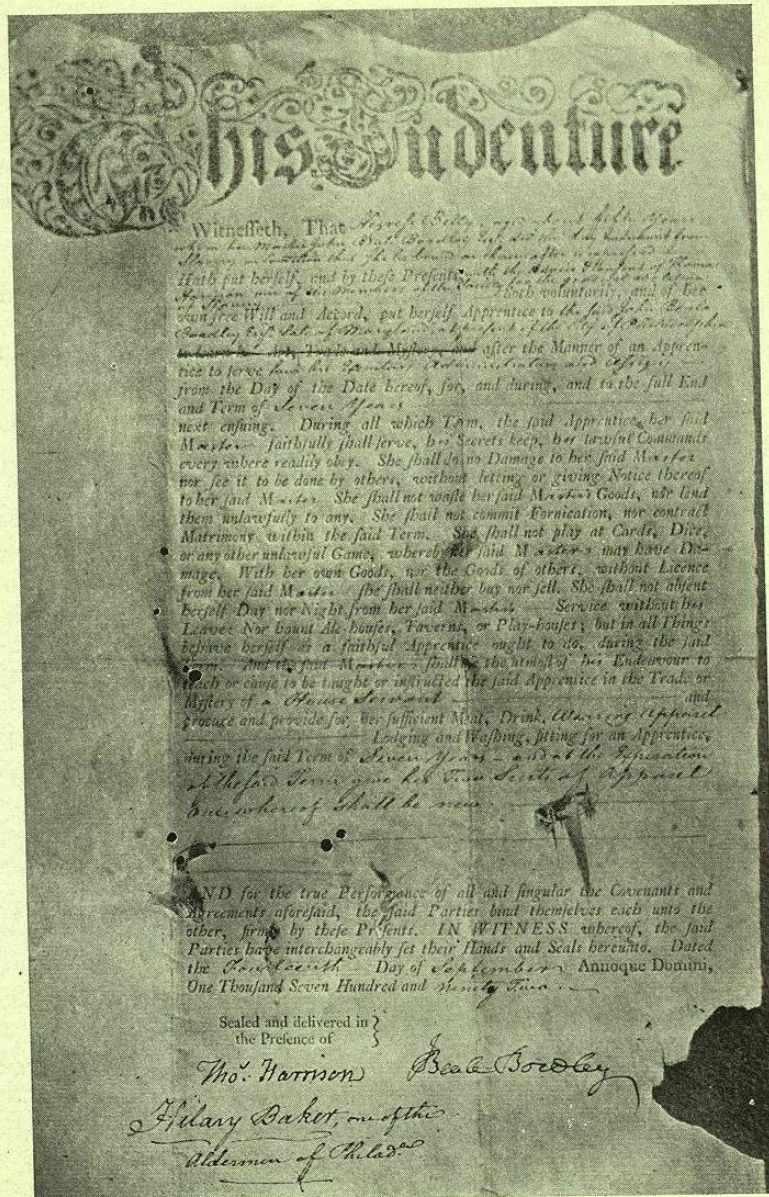 This Indenture
Witnesseth, That Negress Betty aged about fifteen Years
whom her Master John Beale Bordley Esq. did
Slavery
Hath put herself, and by these Presents, with the of Thomas
Harrison one of the Members of the Society for the
of Slavery doth voluntarily, and of her
own free Will and Accord, put herself Apprentice to the said John Beale
Bordley Esq. late of Maryland, at present of the City of Philadelphia
to learn his Art, Trade and Mystery, and after the Manner of an Appren-
tice to serve him his Executors Administrators and Assigns
from the Day of the Date hereof, for, and during, and to the full End
and Term of Seven Years
next ensuing. During all which Term, the said Apprentice, her said
Master faithfully shall serve, his Secrets keep, his lawful Commands
every where readily obey. She shall do no Damage to her said Master
nor see it to be done by others, without letting or giving Notice thereof
to her said Master She shall not waste her said Masters Goods, nor lend
them unlawfully to any. She shall not commit Fornication, nor contract
Matrimony within the said Term. She shall not play at Cards, Dice,
or any other unlawful Game, whereby her said Master may have Da-
mage. With her own Goods, nor the Goods of others, without Licence
from her said Master she shall neither buy nor sell. She shall not absent
herself Day nor Night from her said Masters Service without his
Leave: Nor haunt Ale-houses, Taverns, or Play-houses; but in all Things
behave herself as a faithful Apprentice ought to do, during the said
Term. And the said Master shall the utmost of his Endeavour to
teach or cause to be taught or instructed the said Apprentice in the Trade or
Mystery of a House Servant and
procure and provide for her sufficient Meat, Drink, Wearing Apparel
Lodging and Washing, fitting for an Apprentice,
during the said Term of Seven Years - and at the Expiration
of the said Term give her Two Suits of Apparel
One whereof shall be new
AND for the true Performance of all and singular the Covenants and
Agreements aforesaid, the said Parties bind themselves each unto the
other, firmly by these Presents. IN WITNESS whereof, the said
Parties have interchangeably set their Hands and Seals hereunto. Dated
the Fourteenth Day of September Annoque Domini,
One Thousand Seven Hundred and ninety Two
Sealed and delivered in
the Presence of
Thos. Harrison Beale Bordley
Hilary Baker, one of the
Aldermen of Philada.